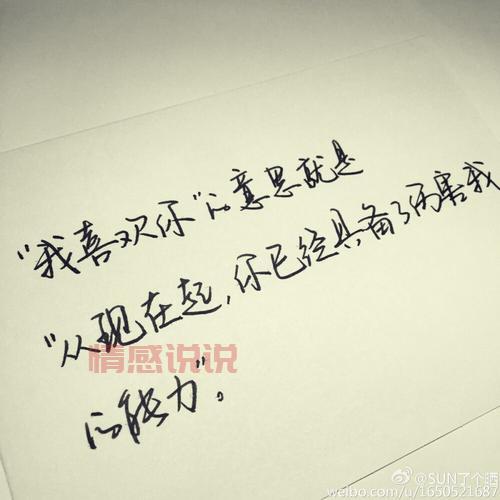 “我喜欢你”的意思就是
“从现在起，你已经具备了伤害我
情感说说
的能力”。
@SUN了个晒
weibo.com/u/1650521687